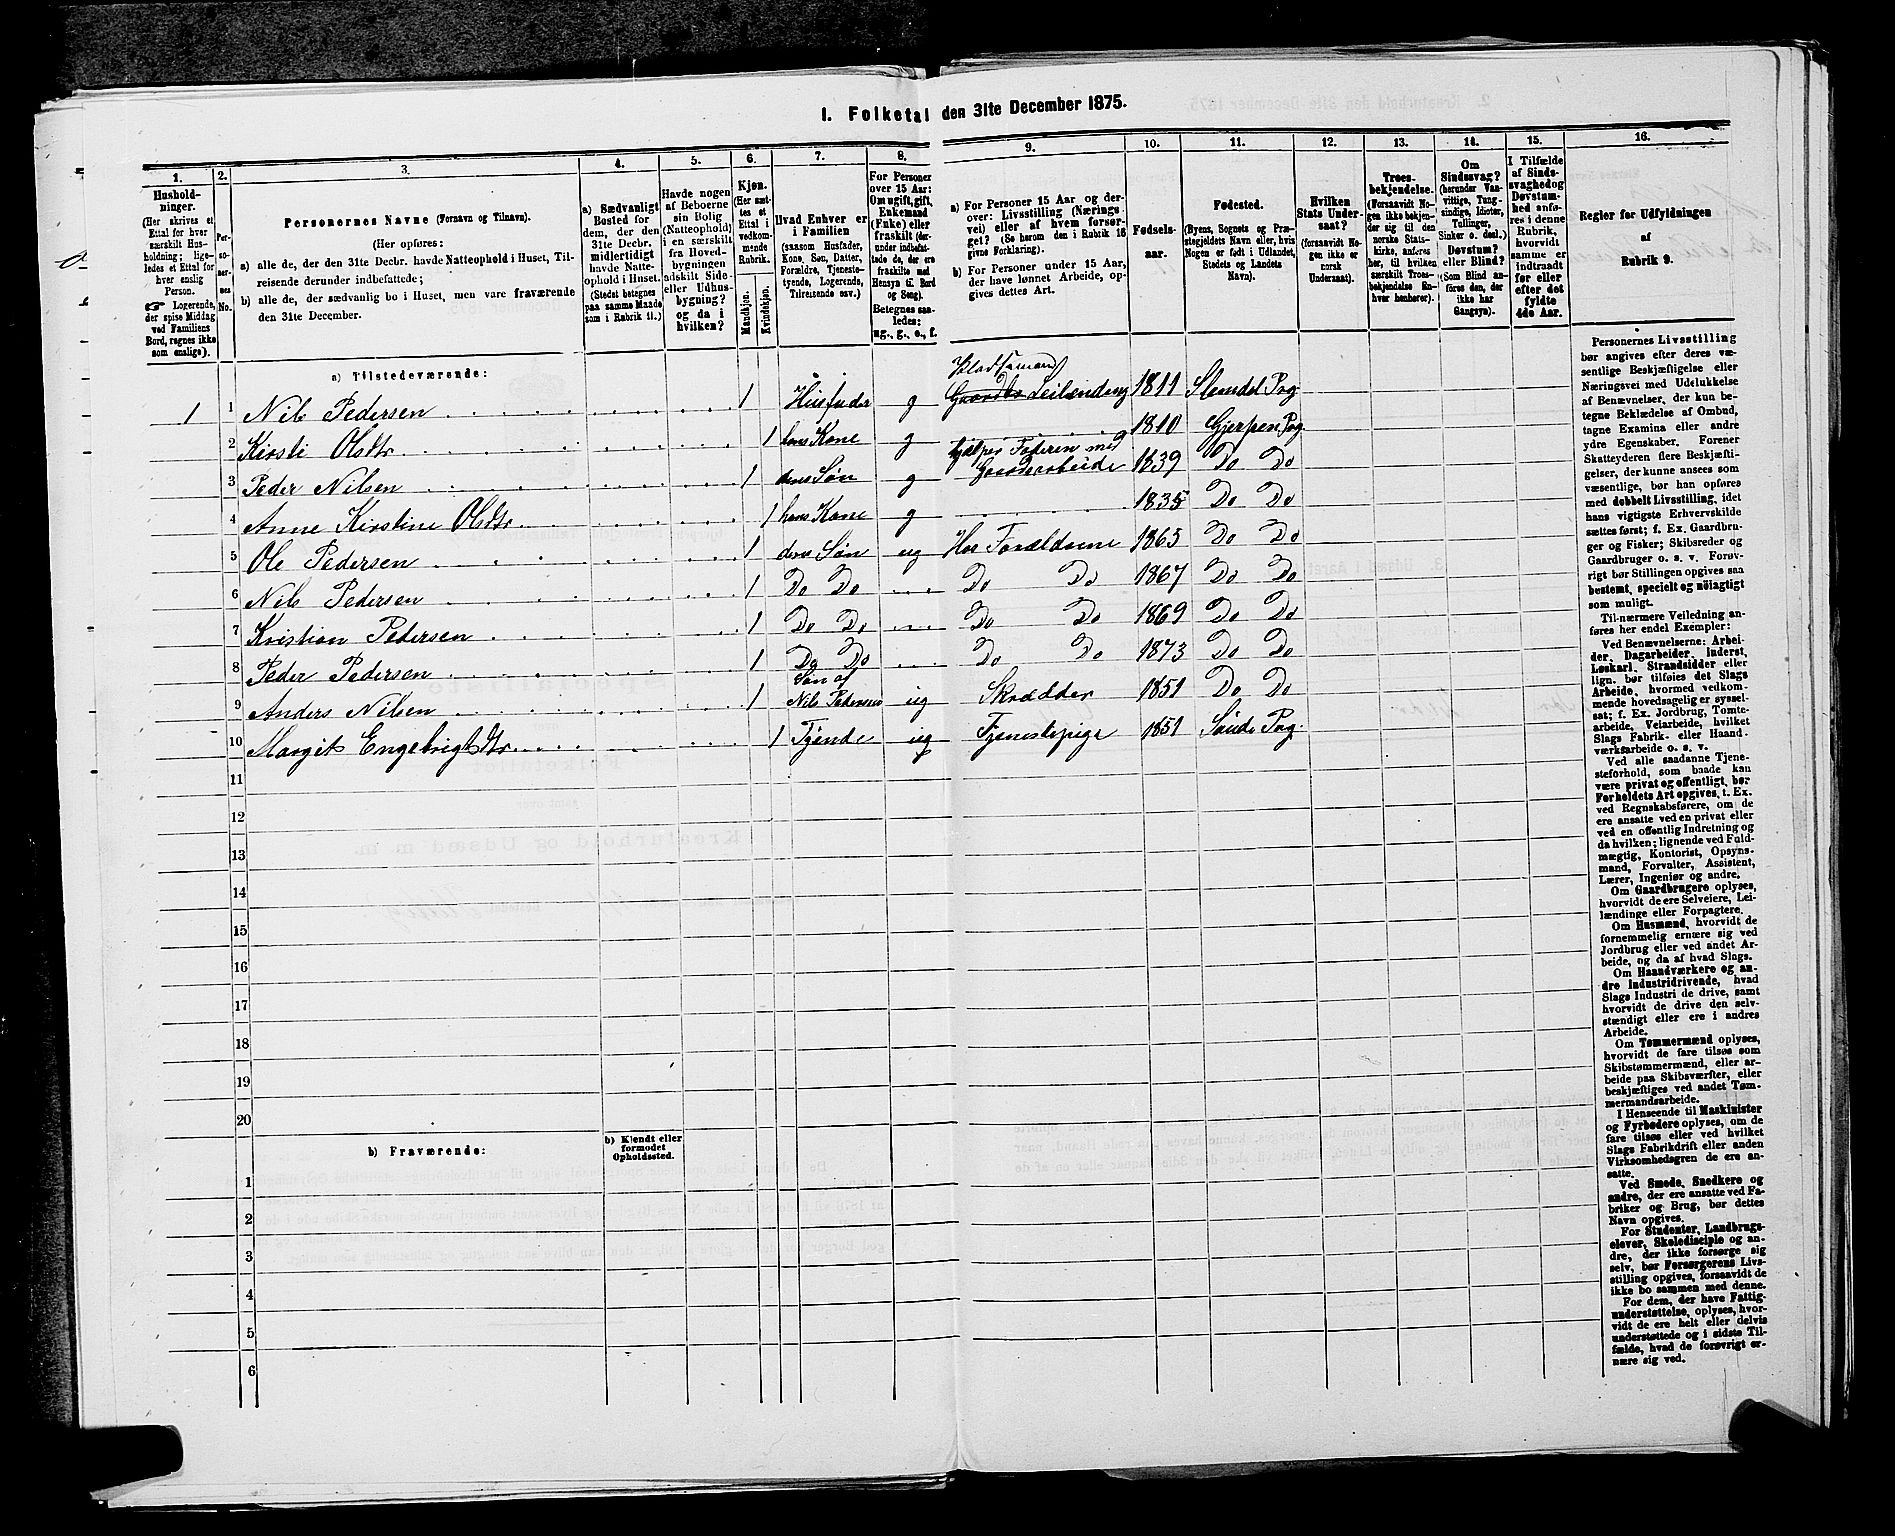 1. Folketal den 31te December 1875.
1. 2. 3. 4. 5. 6. 7. 8. 9. 10. 11. 12. 13. 14. 15. 16.
Hushold-
ninger.
(Her skrives et
Ettal for hver
særskilt Hus-
holdning; lige-
ledes et Ettal for
hver enslig
Person.
☞ Logerende,
der spise Middag
ved Familiens
Bord, regnes ikke
som enslige).
Per-
so-
ner-
nes
No.
Personernes Navne (Fornavn og Tilnavn).
(Her opføres:
a) alle de, der den 31te Decbr. havde Natteophold i Huset, Til-
reisende derunder indbefattede;
b) alle de, der sædvanlig bo i Huset, men vare fraværende
den 31te December.
a) Sædvanligt
Bosted for
dem, der den
31te Decbr.
midlertidigt
havde Natte-
ophold i Huset.
(Stedet betegnes
paa samme Maade
som i Rubrik 11.)
Havde nogen
af Beboerne
sin Bolig
(Natteophold)
i en særskilt
fra Hoved-
bygningen
adskilt Side-
eller Udhus-
bygning?
og da i
hvilken?
Kjøn.
(Her sæt-
tes et
Ettal i
vedkom-
mende
Rubrik.
Mandkjøn.
Kvindekjøn.
Hvad Enhver er
i Familien
(saasom Husfader,
Kone, Søn, Datter,
Forældre, Tjeneste-
tyende, Logerende,
Tilreisende osv.)
For Personer
over 15 Aar:
Om ugift, gift,
Enkemand
(Enke) eller
fraskilt (der-
under indbefat-
tede de, der ere
fraskilte med
Hensyn til Bord
og Seng).
Betegnes saa-
ledes:
ug., g., e., f.
a) For Personer 15 Aar og der-
over: Livsstilling (Nærings
vei) eller af hvem forsør-
get? (Se herom den i Rubrik 16
givne Forklaring).
b) For Personer under 15 Aar,
der have lønnet Arbeide, op-
gives dettes Art.
Fødsels-
aar.
Fødested.
(Byens, Sognets og Præ-
stegjeldets Navn eller, hvis
Nogen er født i Udlandet,
Stedets og Landets
Navn).
Hvilken
Stats Under-
saat?
(forsaavidt No-
gen ikke er
norsk
Undersaat).
Troes-
bekjendelse.
(Forsaavidt No-
gen ikke bekjen-
der sig til den
norske Stats-
kirke, anføres
her, til hvilken
særskilt Troes-
bekjendelse En-
hver henhører).
Om
Sindssvag?
(herunder Van-
vittige, Tung-
sindige, Idioter,
Tullinger,
Sinker o. desl.)
Døvstum?
eller Blind?
(Som Blind an-
føres den, der
ikke har
Gangsyn).
I Tilfælde
af Sinds-
svaghedog
Døvstum-
hed anfø-
res i denne
Rubrik,
hvorvidt
samme er
indtraadt
før eller
efter det
fyldte
4de Aar.
Regler for Udfyldningen
af
Rubrik 9.
a) Tilstedeværende:
Pladsemand
1 1 Nils Pedersen 1 Husfader g Leilending 1811 Slemdal Pg
2 Kirsti Olsdtr 1 hans Kone g 1810 Gjerpen Pg
hjælper Faderen med
3 Peder Nilsen 1 deres Søn g Gaardsarbeide 1839 Do Do
4 Anne Kirstine Olsdtr 1 hans Kone g 1835 Do Do
5 Ole Pedersen 1 deres Søn ug Hos Forældrene 1863 Do Do
6 Nils Pedersen 1 Do Do Do Do 1867 Do Do
7 Kristian Pedersen 1 Do Do Do Do 1869 Do Do
8 Peder Pedersen 1 Do Do Do Do 1873 Do Do
Søn af
9 Anders Nilsen 1 Nils Pedersen ug Skrædder 1851 Do Do
10 Margit Engebrigtsdtr 1 Tjende ug Tjenestepige 1851 Saude Pg
11
12
13
14
15
16
17
18
19
20
b) Fraværende:
b) Kjendt eller
formodet
Opholdssted.
1
2
3
4
5
6
Personernes Livsstilling
bør angives efter deres væ-
sentlige Beskjæftigelse eller
Næringsvei med Udelukkelse
af Benævnelser, der kun be-
tegne Beklædelse af Ombud,
tagne Examina eller andre
ydre Egenskaber. Forener
Skatteyderen flere Beskjæfti-
gelser, der kunne ansees som
væsentlige, bør han opføres
med dobbelt Livsstilling, idet
hans vigtigste Erhvervskilde
sættes først; f. Ex. Gaardbru-
ger og Fisker; Skibsreder og
Gaardbruger o. s. v. Forøv-
rigt bør Stillingen opgives saa
bestemt, specielt og nøiagtigt
som muligt.
Til nærmere Veiledning an-
føres her endel Exempler:
Ved Benævnelserne: Arbei-
der, Dagarbeider, Inderst,
Løskarl, Strandsidder eller
lign. bør tilføies det Slags
Arbeide, hvormed vedkom-
mende hovedsagelig er syssel-
sat; f. Ex. Jordbrug, Tomte-
arbeide, Veiarbeide, hvilket
Slags Fabrik- eller Haand-
værksarbeide o. s. v.
Ved alle saadanne Tjene-
steforhold, som baade kan
være privat og offentligt, bør
Forholdets Art opgives, t. Ex.
ved Regnskabsførere, om de
ere ansatte ved en privat eller
ved en offentlig Indretning og
da hvilken; lignende ved Fuld-
mægtig, Kontorist, Opsyns-
mand, Forvalter, Assistent,
Lærer, Ingeniør og andre.
Om Gaardbrugere oplyses,
hvorvidt de ere Selveiere, Lei-
lændinge eller Forpagtere.
Om Husmænd, hvorvidt de
fornemmelig ernære sig ved
Jordbrug eller ved andet Ar-
beide, og da af hvad Slags.
Om Haandværkere og an-
dre Industridrivende, hvad
Slags Industri de drive, samt
hvorvidt de drive den selv-
stændigt eller ere i andres
Arbeide.
Om Tømmermænd oplyses,
hvorvidt de fare tilsøs som
Skibstømmermænd, eller ar-
beide paa Skibsværfter, eller
beskjæftiges ved andet Tøm-
mermandsarbeide.
I Henseende til Maskinister
og Fyrbødere oplyses, om de
fare tilsøs eller ved hvilket
Slags Fabrikdrift eller anden
Virksomhedsgren de ere an-
satte.
Ved Smede, Snedkere og
andre, der ere ansatte ved Fa-
briker og Brug, bør dettes
Navn opgives.
For Studenter, Landbrugs-
elever, Skoledisciple og an-
dre, der ikke forsørge sig
selv, bør Forsørgerens Livs-
stilling opgives, forsaavidt de
ikke bo sammen med denne.
For dem, der have Fattig-
understøttelse, oplyses, hvor-
vidt de ere helt eller delvis
understøttede og i sidste Til-
fælde, hvad de forøvrigt er-
nære sig ved.